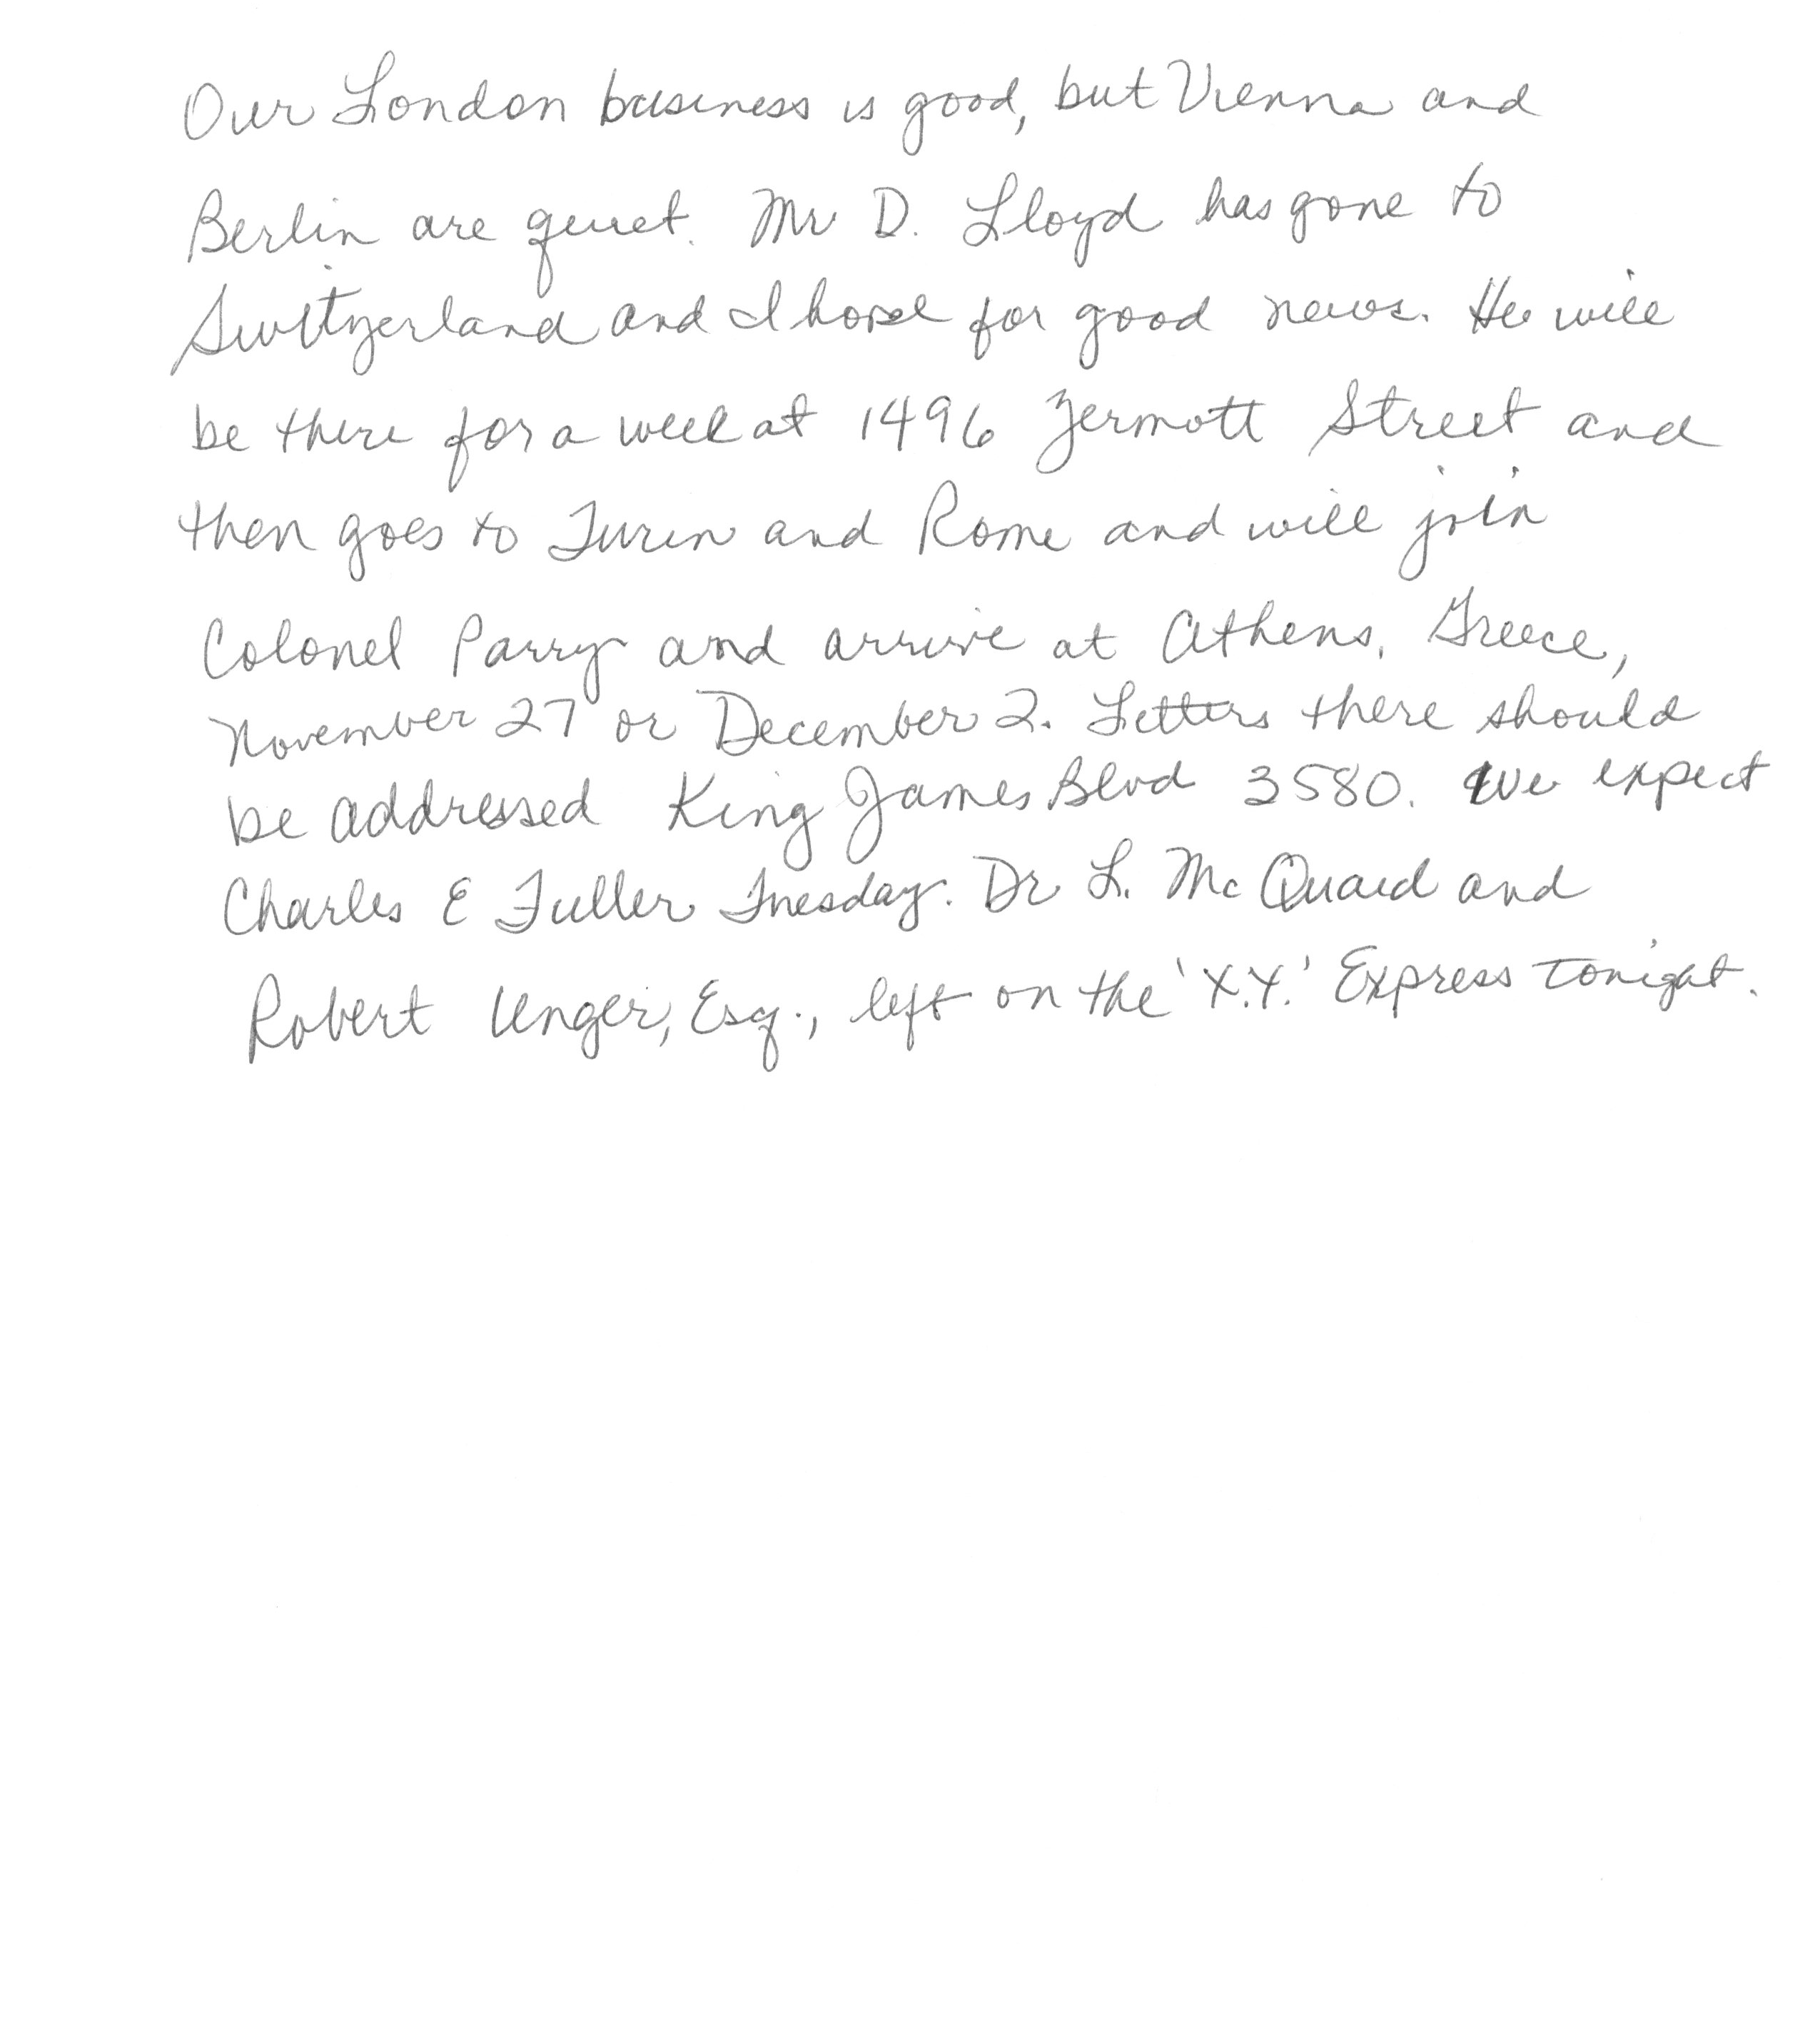 Our London business is good, but Vienna and
Berlin are quiet. Mr D. Lloyd has gone to
Switzerland and I hope for good news. He will
be there for a week at 1496 Zermott Street and
then goes to Turin and Rome and will join
Colonel Parry and arrive at Athens, Greece,
November 27 or December 2. Letters there should
be addressed King James Blvd 3580. We expect
Charles E Fuller Tuesday. Dr L. McQuaid and
Robert Unger, Esq., left on the 'X.Y.' Express tonight.